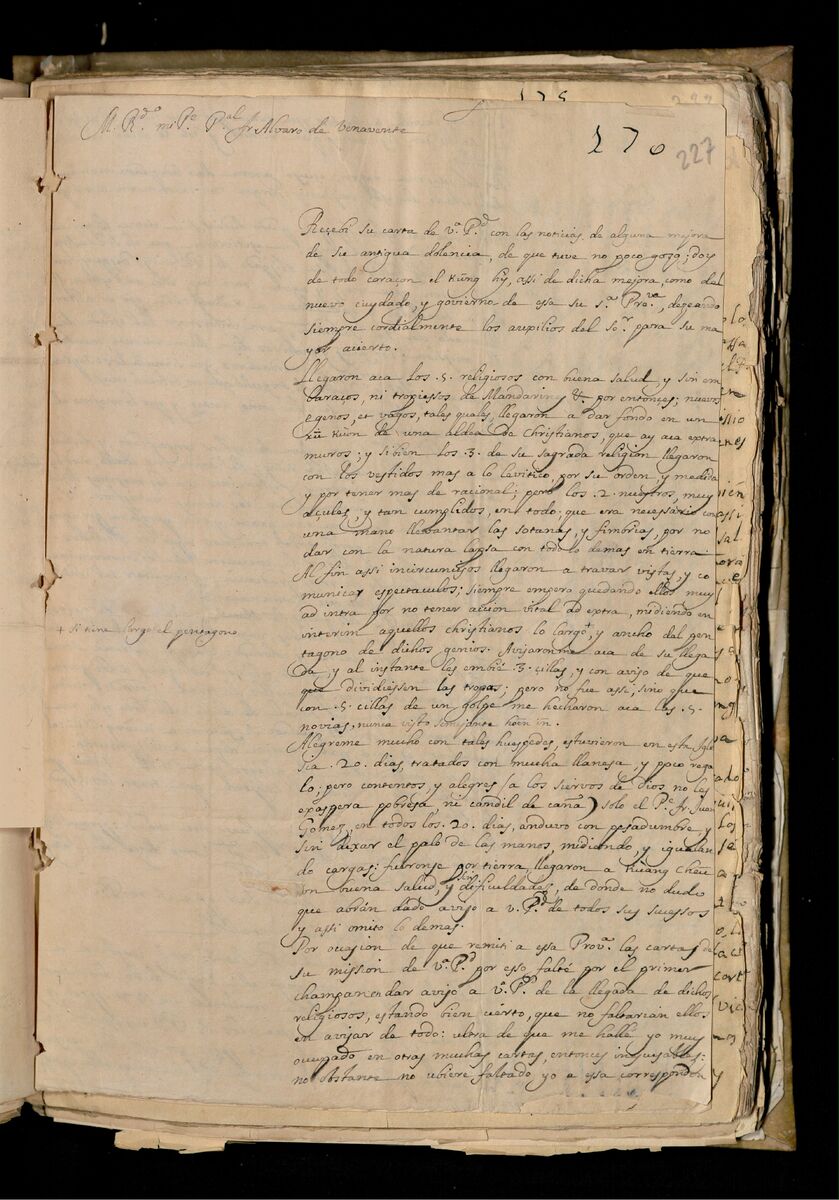 M. Rdo. mi Pe. Pal. fr Alvaro de Venavente
270
227
Recebi su carta de va. Pd. con las noticias de alguna mejora
de su antigua dolencia, de que tuve no poco gozo; doy
de todo coraçon el Kūng hỳ, assi de dicha mejora, como del
nuevo cuydado, y govierno de essa su sa. Prova., deseando
siempre cordialmente los auxilios del Sor. para su ma
yor acierto.
Llegaron aca los .5. religiosos con buena salud, y sin em
baraços, ni tropiessos de Mandarin, &. por entonces; nuevos
egenos, et vagos, tales quales, llegaron a dar fondo en un
de una aldea de Christianos, que ay aca extra
muros; y si bien los .3. de su sagrada religion llegaron
con los vestidos mas a lo levitico, por su orden, y medida
y por tener mas de racional; pero los .2. nuestros, muy
açules, y tan cumplidos, en todo; que era necessario con
una mano llebantar las sotanas, y fimbrias, por no
dar con la natura lapsa con todo lo demas en tierra.
Al fin assi incircuncisos llegaron a travar vistas, y co
municar espectaculos; siempre empero quedando ellos muy
ad intra por no tener accion vital ad extra, midiendo in
interim aquellos christianos lo largo+, y ancho del pen
+ si tiene largo el pentagono
tagono de dichos genios. Avisaronme aca de su llega
da, y al instante les embié .3. cillas, y con aviso de que
que dividiessen las tropas; pero no fue assi, sino que
con .5. cillas de un golpe me hecharon aca las .5.
novias, nunca visto semejante hoēn in.
Alegreme mucho con tales huespedes, estuvieron en esta Igle
sia .20. dias, tratados con mucha llanesa, y poco rega
lo; pero contentos, y alegres (a los siervos de Dios no les
exaspera pobresa, ni candil de caña) solo el Pe. fr. Juan
Gomez, en todos los .20. dias, anduvo con pesadumbre, y
sin dexar el palo de las manos, midiendo, y igualan
do cargas; fueronse por tierra, llegaron a Kuang Cheu
con buena salud, y sin dificuldades, de donde no dudo
que abrán dado aviso a v. Pd. de todos sus sucessos
y assi omito lo demas.
Por ocasion de que remiti a essa Prova. las cartas de
su mission de va. Pd. por esso falté por el primer
champan en dar aviso a va. Pd. de la llegada de dichos
religiosos, estando bien cierto, que no faltarian ellos
en avisar de todo: ultra de que me hallé yo muy
ocupado en otras muchas cartas, entonces inexcusables:
no obstante no ubiere faltado yo a essa correspondon